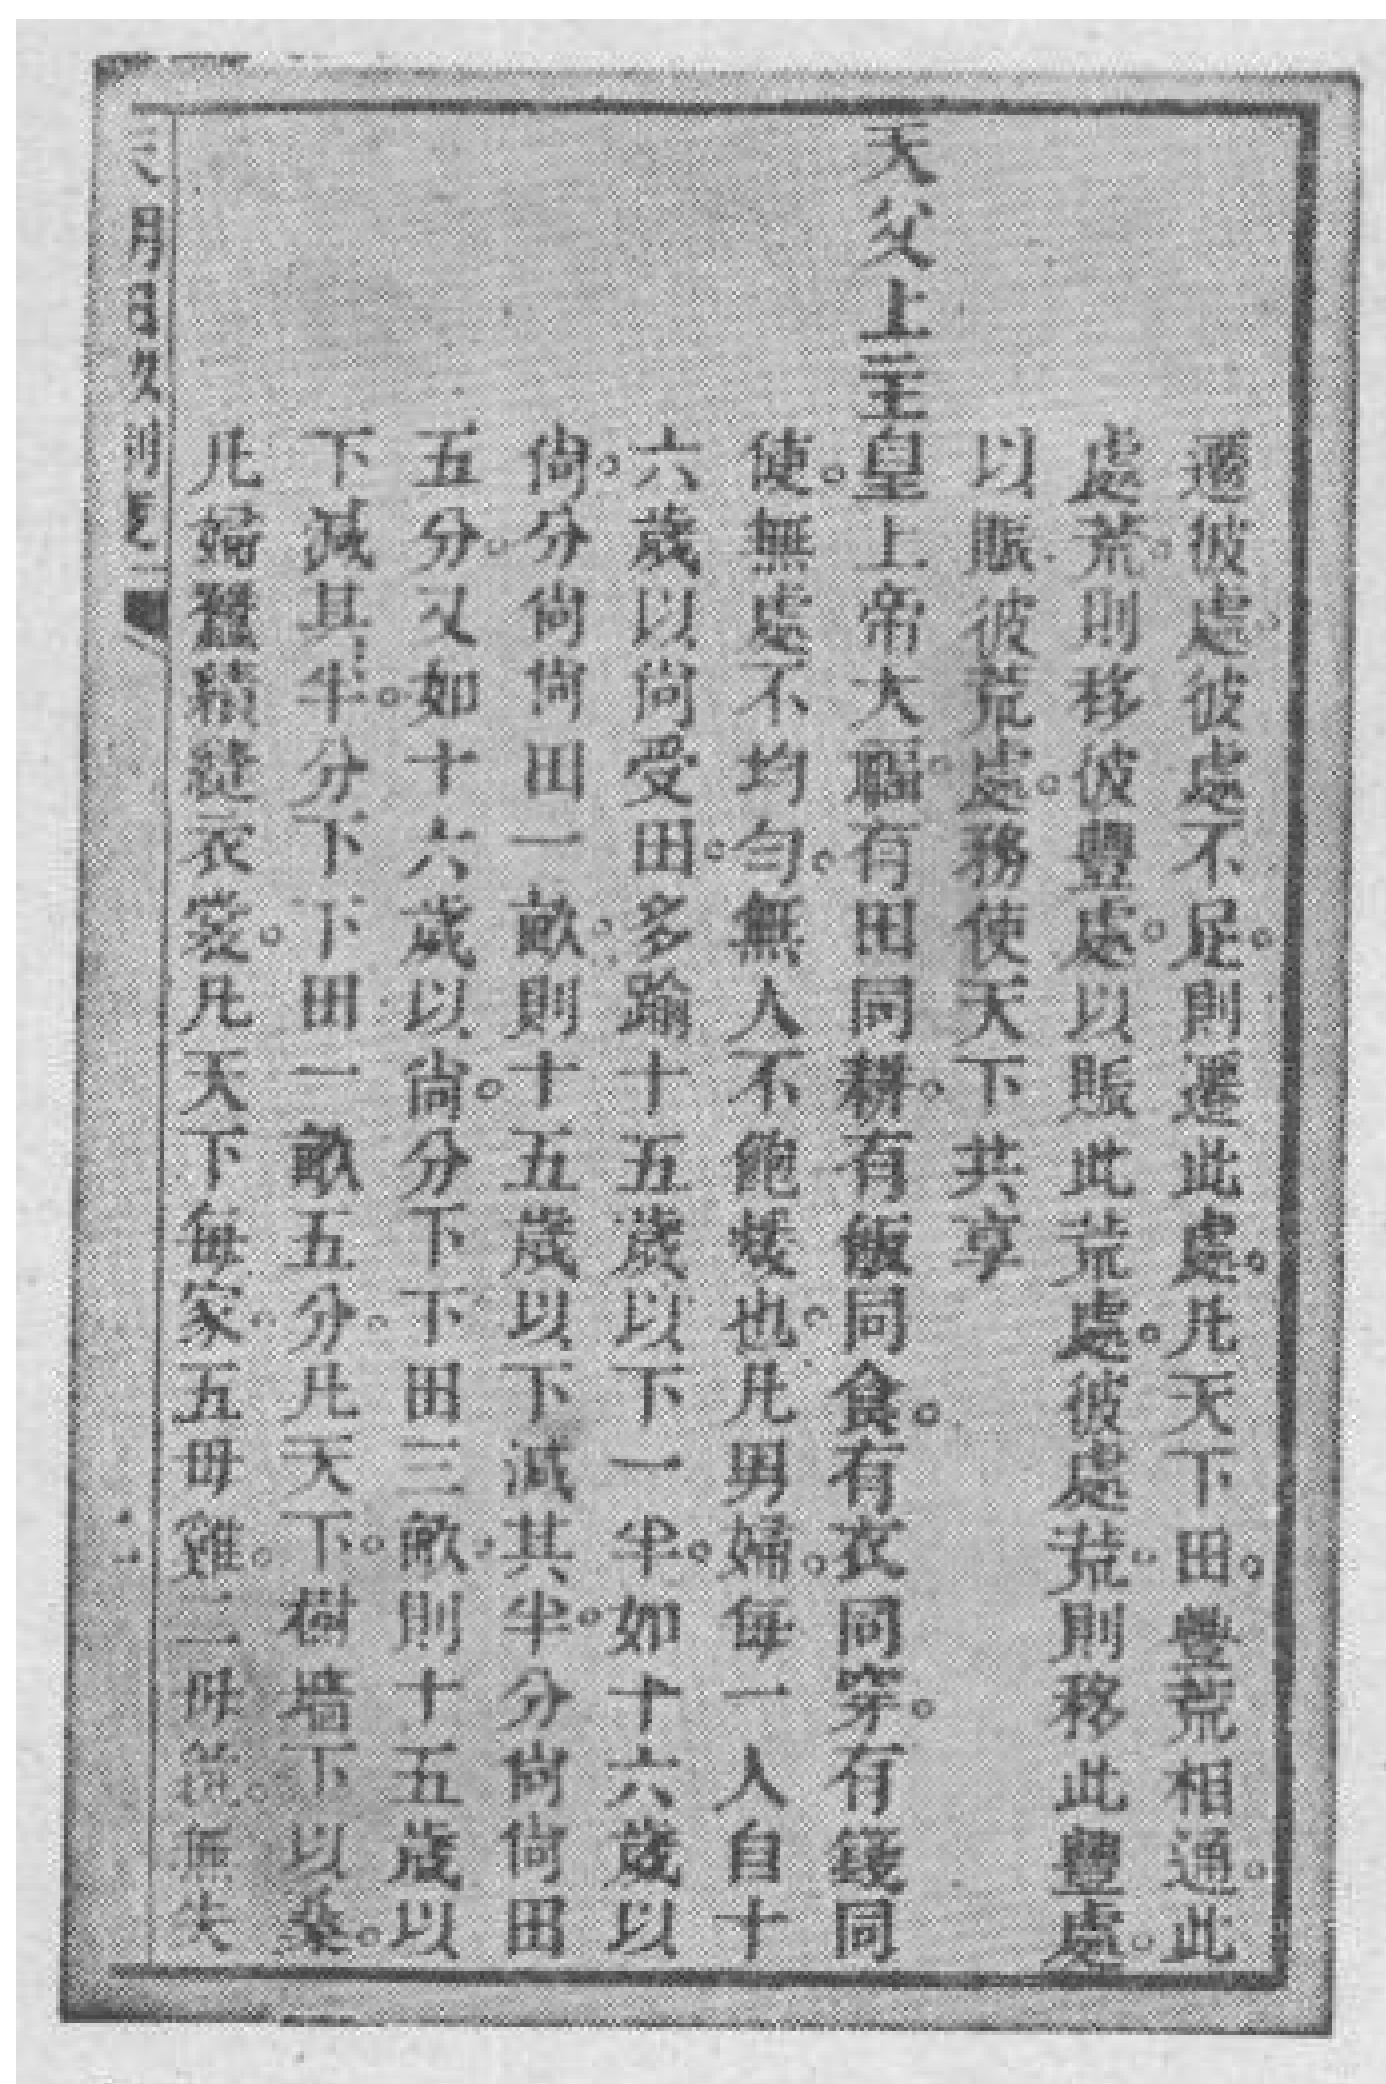 遷彼處。彼處不足。則遷此處。凡天下田。豐荒相通。此
處荒。則移彼豐處。以賑此荒處。彼處荒。則移此豐處。
以賑彼荒處。務使天下共享
天父上主皇上帝大福。有田同耕。有飯同食。有衣同穿。有錢同
使。無處不均勻。無人不飽煖也。凡男婦。每一人自十
六歲以尚受田。多踰十五歲以下一半。如十六歲以
尚。分尚尚田一畝。則十五歲以下減其半。分尚尚田
五分。又如十六歲以尚。分下下田三畝。則十五歲以
下減其半。分下下田一畝五分。凡天下。樹墻下以桑。
凡婦蠶績縫衣裳。凡天下每家。五母雞。二母彘。無失